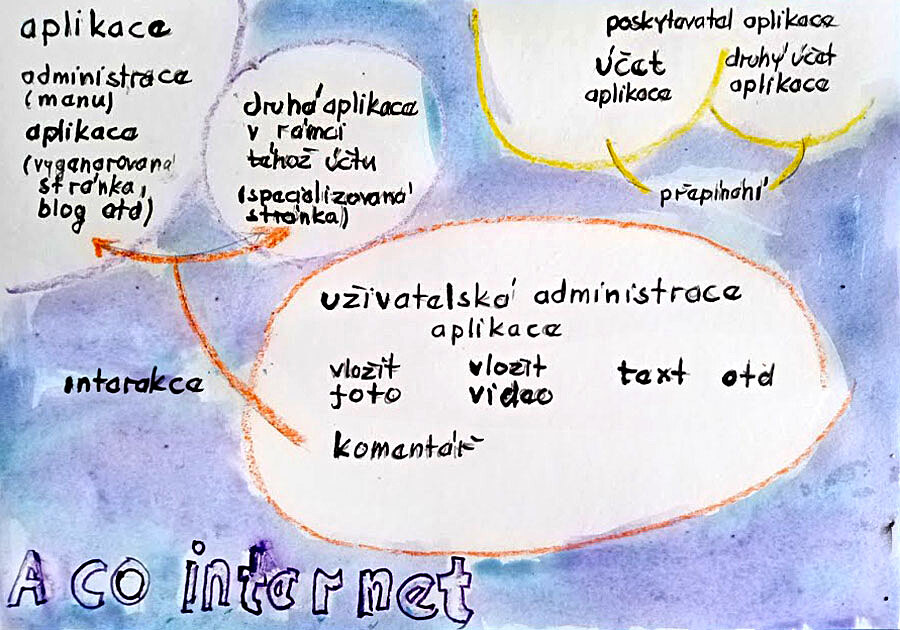 aplikace
administrace
(manu)
aplikace
(vyganarovaná
stránka,
blog atd)
druhá aplikace
v rámci
táhož účtu
(spacializovaná
stránka)
poskytavatal aplikace
účat
aplikace
druhý účat
aplikace
přapínání
uživatalská administrace
aplikace
vložit
foto
vložit
video
taxt
atd
komantář
intarakce
A co intarnet